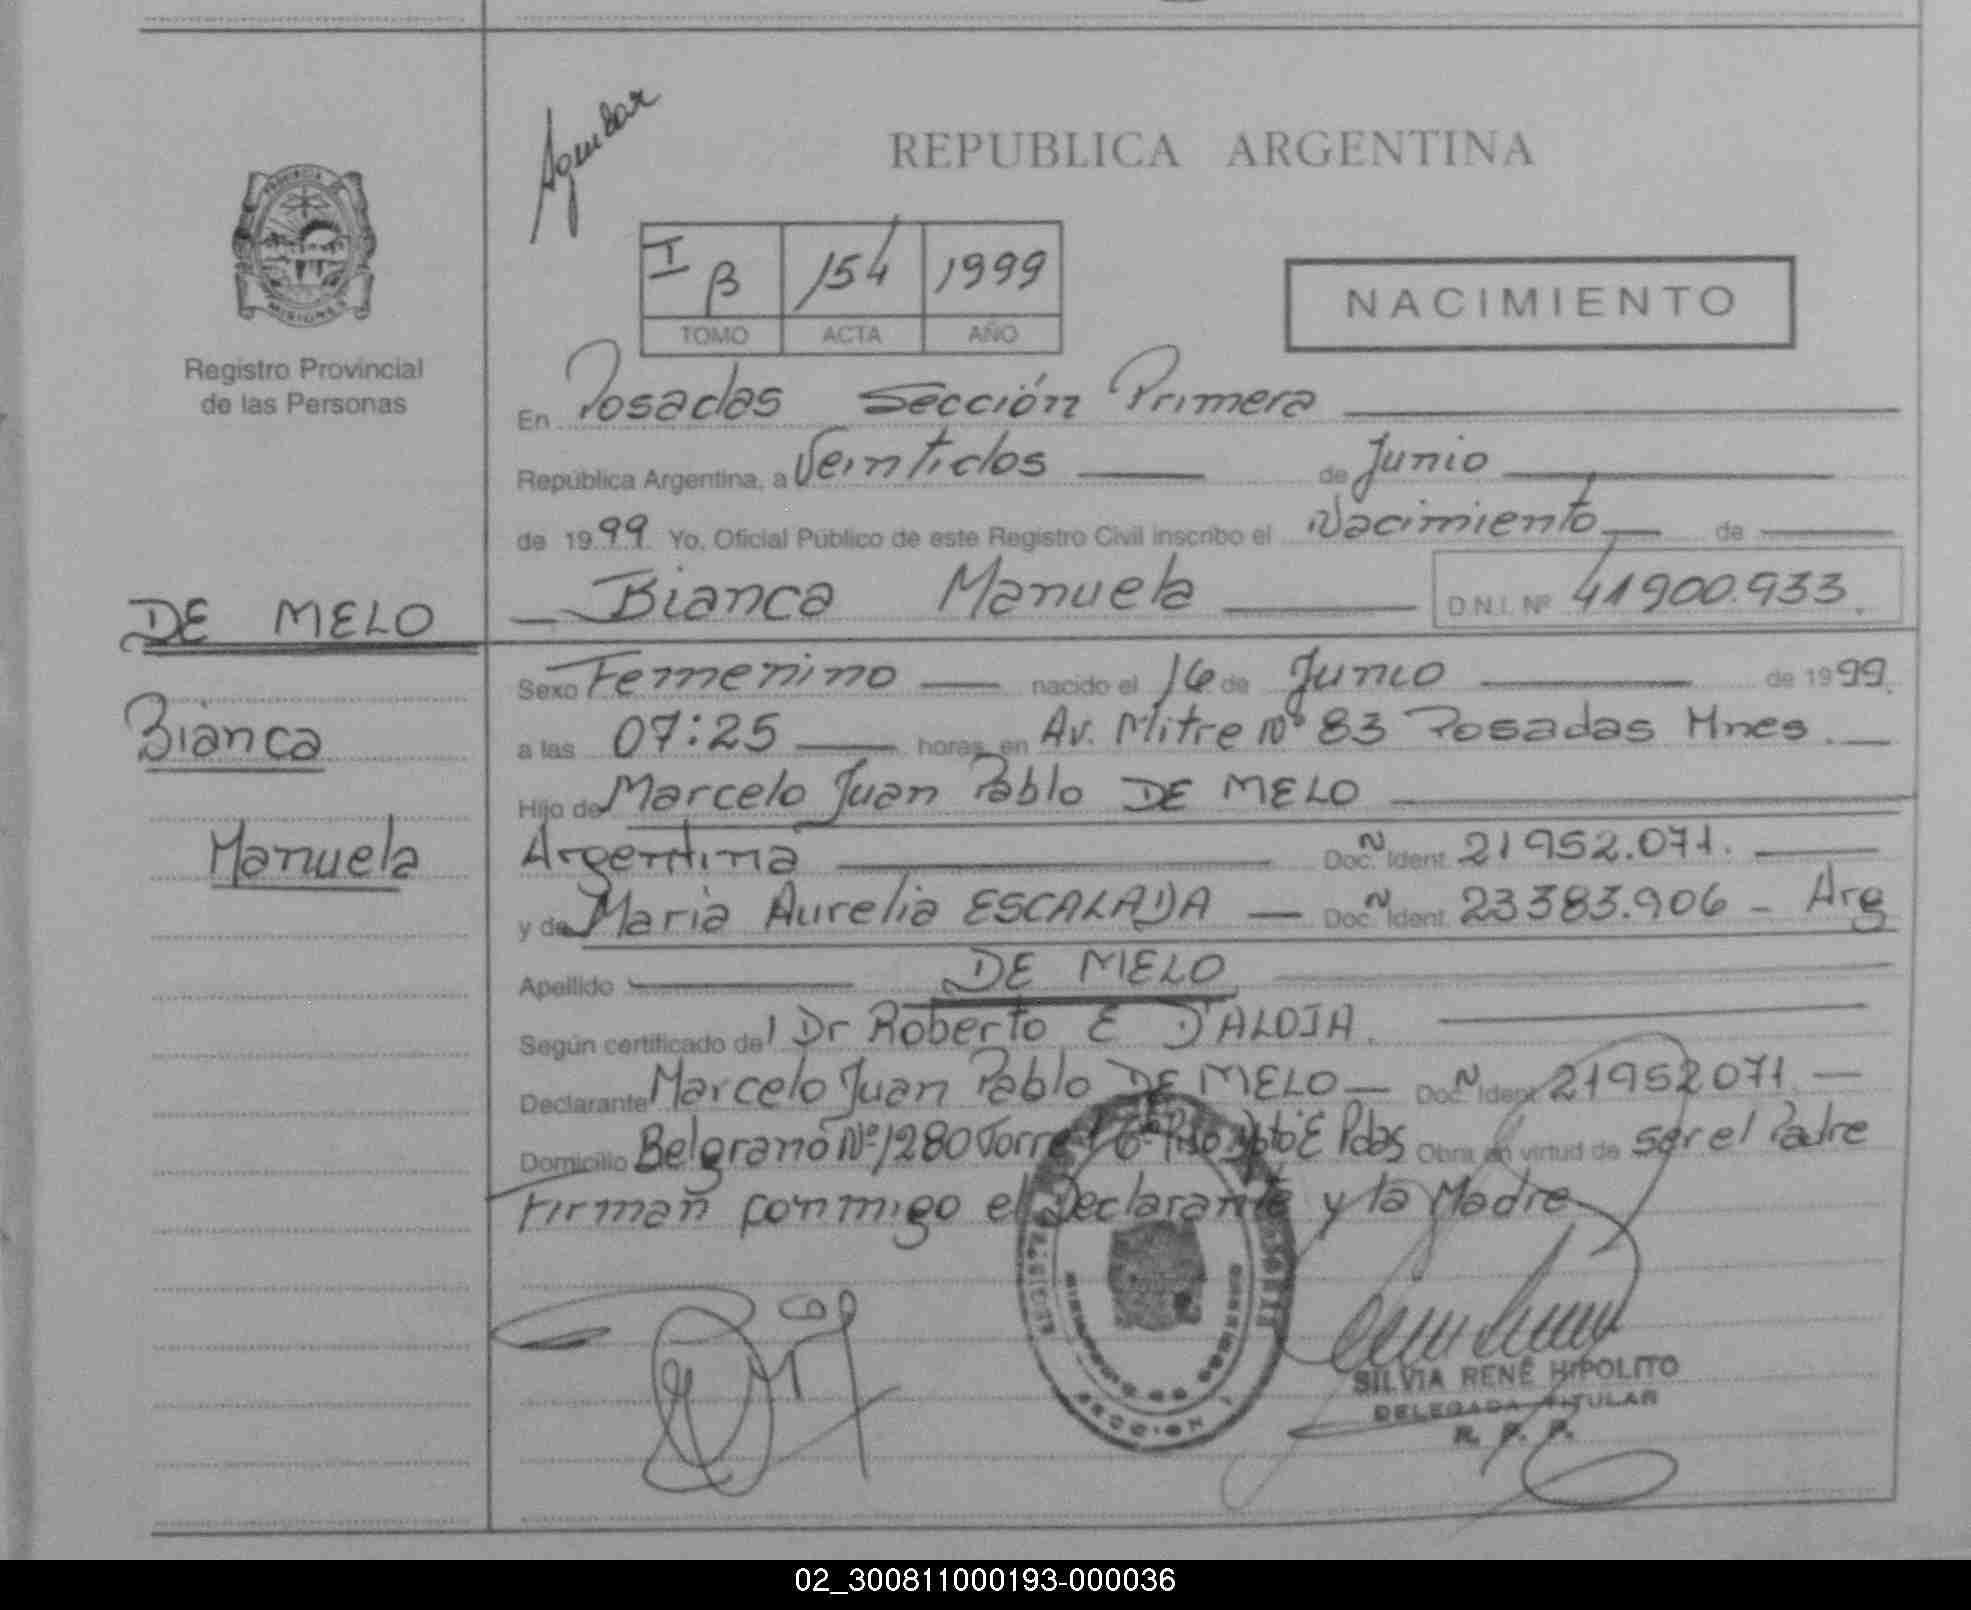 Aguilar
REPUBLICA ARGENTINA
PROVINCIA DE
MISIONES
I B 154 1999
TOMO ACTA AÑO
NACIMIENTO
Registro Provincial
de las Personas
En Posadas Sección Primera
República Argentina, a Veintidos de Junio
de 1999 Yo, Oficial Público de este Registro Civil inscribo el Nacimiento de
Bianca Manuela D.N.I. Nº 41900.933
DE MELO
Bianca
Manuela
Sexo Femenino nacido el 16 de Junio de 1999.
a las 07:25 horas, en Av. Mitre Nº 83 Posadas Mnes.
Hijo de Marcelo Juan Pablo DE MELO
Argentina Doc. Ident. 21952.071.
y de Maria Aurelia ESCALADA Doc. Ident. 23383.906 - Arg
Apellido DE MELO
Según certificado del Dr Roberto E D'ALOIA.
Declarante Marcelo Juan Pablo DE MELO Doc. Ident. 21952071
Domicilio Belgrano Nº 1280 Torre 1 6º Piso Dpto E Pdas Obra en virtud de ser el Padre
Firman conmigo el Declarante y la Madre
SECCION 1
SILVIA RENÉ HIPOLITO
DELEGADA TITULAR
R. P. P.
02_300811000193-000036